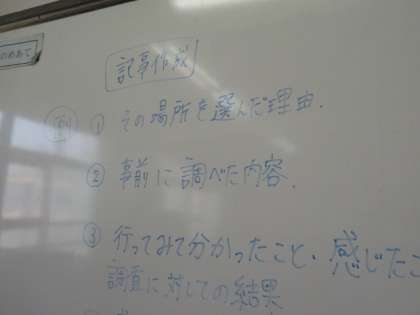 のめあて
記事作成
例 ① その場所を選んだ理由.
② 事前に調べた内容.
③ 行ってみて分かったこと・感じたこ
調査に対しての結果